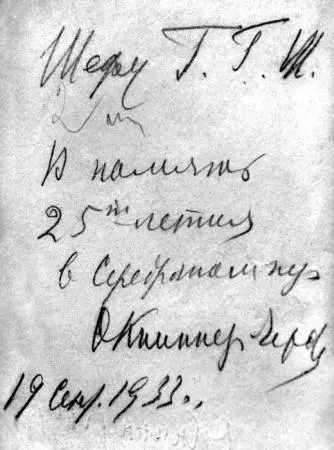 Шефу Г. Г. Ш.
В память
25ти летия
в Серебряном пер.
О Книппер-Чехова
19 сент. 1933 г.